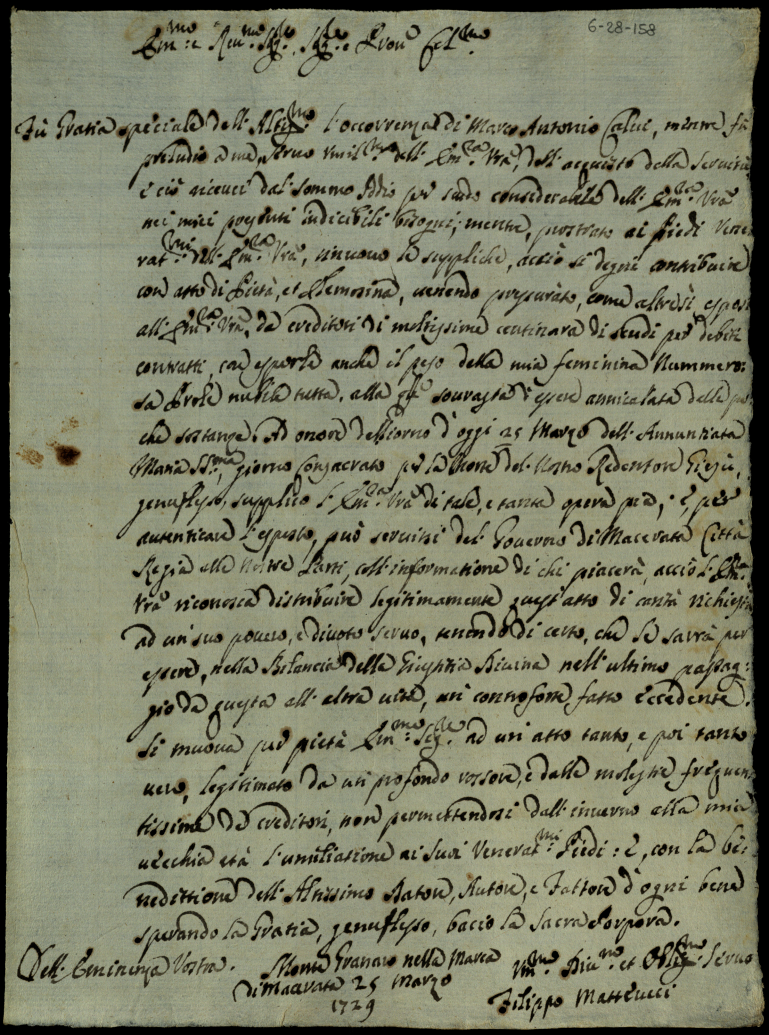 6-28-158
Em:mo e Rev:mo Sig:re, Sig:re e Pron
Fù Gratia speciale dell'Altis:mo l'occorrenza di Marco Antonio Calvi, mentre fù
preludio a me, servo umil:mo dell'Em:za Vra, dell'acquisto della servitù
e ciò ricevei dal sommo Iddio per considerabile dell'Em:za Vra
nei miei presenti indicibili bisogni; mentre, prostrato ai Piedi Vene
rat:mi dell'Em:za Vra, rinuovo le suppliche, acciò si degni contribuire
con atto di Pietà, et Elemosina, venendo proseguitato, come altresì esposi
all'Em:za Vra, da creditori di moltissime centinara di scudi per debiti
contratti, con esporle anche il peso della mia feminina Nummero:
sa Prole nubile tutta, alla qle sovrasta l'essere annicilata delle po
che sostanze. Ad onore del Giorno d'oggi 25 Marzo dell'Annuntiata
Maria SS:ma, giorno consacrato per la Morte del Nostro Redentore Giesù,
genuflesso, supplico l'Em:za Vra di tale, e tanta opera pia, e, per
autenticare l'esposto, può servirsi del Governo di Macerata Città
Regia alle Nostre Parti, coll'informatione di chi piacerà, acciò l'Em:za
Vra riconosca distribuire legitimamente quest'atto di carità richiesto
ad un suo povero, e divoto servo, tenendo di certo, che le sarrà per
essere, nella Bilancia della Giustitia Divina nell'ultimo passag:
gio da questa all'altra vita, un contraforte fatto eccedente.
Si muova per pietà Em:mo Sig:re ad un atto tanto, e poi tanto
vero, legitimato da un profondo rossore, e dalle molestie frequen
tissime de creditori, non permettendosi dall'inverno alla mia
vecchia età l'umiliatione ai suoi Venerat:mi Piedi: e, con la be:
nedittione dell'Altissimo Datore, Autore, e Fattore d'ogni bene
sperando la Gratia, genuflesso, bacio la Sacra Porpora.
Dell'Eminenza Vostra.
Monte Granaro nella Marca
di Macerata 25 Marzo
1729
Um:mo Div:mo et Oblig:mo Servo
Filippo Matteucci